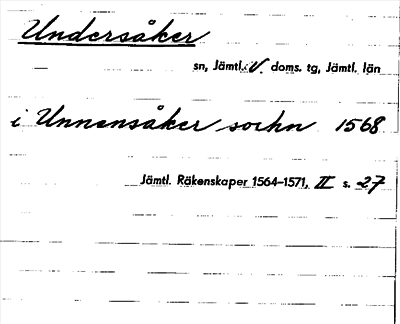 Undersåker
sn, Jämtl. V. doms. tg, Jämtl. län
i Unnensåker sochn 1568
Jämtl. Räkenskaper 1564–1571, II s. 27